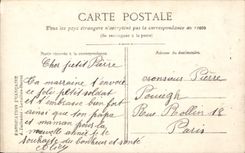 CARTE POSTALE
Tous les pays étrangers n'acceptent pas la correspondance au recto
(Se renseigner à la poste)
Correspondance
Adresse du destinataire
Cher petit Pierre
Ta marraine t'envoie
ce joli petit soldat
et t'embrasse bien fort
ainsi que ton papa
et maman pour la
nouvelle année je te
souhaite du bonheur et santé
Monsieur Pierre
Rue Rollin 18
Paris